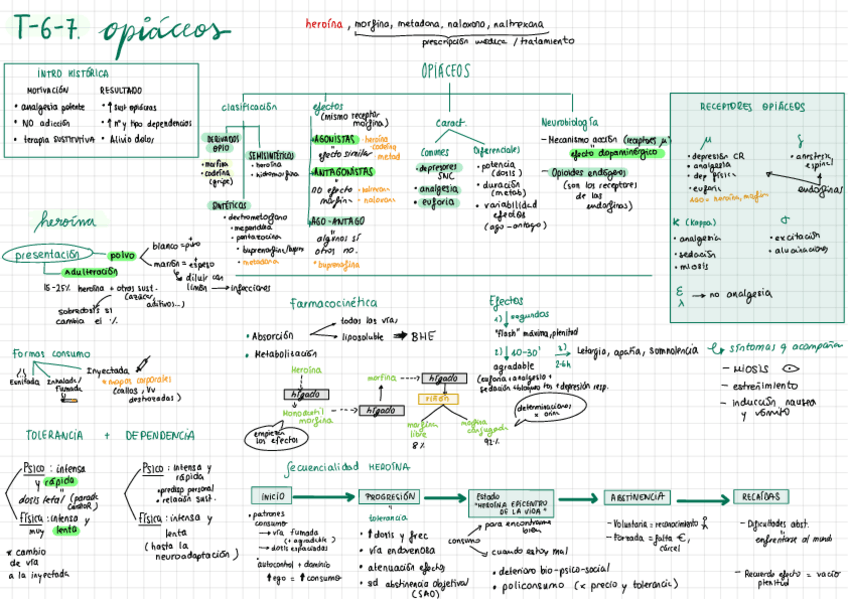 T-6-7. opiáceos
heroína, morfina, metadona, naloxona, naltrexona
prescripción médica / tratamiento
INTRO HISTÓRICA
MOTIVACIÓN
• analgesia potente
• NO adicción
• terapia SUSTITUTIVA
RESULTADO
• ↑ sust opiáceas
• ↑ nº y tipo dependencias
• Alivio dolor
OPIÁCEOS
clasificación
DERIVADOS OPIO
• morfina
• codeína
(gripe)
SEMISINTÉTICOS
• heroína
• hidromorfina
SINTÉTICOS
• dextrometorfano
• meperidina
• pentazocina
• buprenorfina
• metadona
efectos
(mismo receptor
morfina)
• AGONISTAS
heroína
codeína
metad
efecto similar
• ANTAGONISTAS
no efecto
morfina
• naloxona
• naltrexona
• AGO-ANTAGO
algunos sí
otros no.
• buprenorfina
caract.
Comunes
• depresores
SNC
• analgesia
• euforia
Diferenciales
• potencia
(dosis)
• duración
(metab)
• variabilidad
efectos
(ago-antago)
Neurobiología
- Mecanismo acción (receptores μ)
efecto dopaminérgico
- Opioides endógenos
(son los receptores
de las
endorfinas)
RECEPTORES OPIÁCEOS
μ
• depresión CR
• analgesia
• dep física
• euforia
AGO = heroína, morfina
δ
• anestesia
espinal
endorfinas
K (Kappa)
• analgesia
• sedación
• miosis
σ
• excitación
• alucinaciones
ε
λ → no analgesia
heroína
presentación
polvo
blanco = puro
marrón = espeso
diluir con
limón → infecciones
adulteración
15-25% heroína + otros sust.
(azúcar,
aditivos...)
sobredosis si
cambia el %
Formas consumo
Esnifada
Inhalada/
fumada
Inyectada
• mapas corporales
(callos, Vv
destrozadas)
TOLERANCIA + DEPENDENCIA
Psico: intensa
y rápida
dosis letal (parada
cardioR)
Física: intensa y
muy lenta
* cambio
de vía
a la inyectada
Psico: intensa y
rápida
• predisp personal
• relación sust.
Física: intensa y
lenta
(hasta la
neuroadaptación)
Farmacocinética
• Absorción
todas las vías
liposoluble → BHE
• Metabolización
Heroína
hígado
Monoacetil
morfina
empiezan
los efectos
hígado
morfina
hígado
riñón
morfina
libre
8%
morfina
conjugada
92%
determinaciones
x orina
Efectos
1) segundos
"flash" máxima, plenitud
2) 40-30'
agradable
(euforia + analgesia +
sedación + bloqueo tos + depresión resp.
3)
2-6h
Letargia, apatía, somnolencia
síntomas q acompañan
- MIOSIS
- estreñimiento
- inducción, náusea
y vómito
Secuencialidad HEROÍNA
INICIO
• patrones
consumo
→ vía fumada
(+ agradable)
→ dosis espaciadas
autocontrol + dominio
↑ ego = ↑ consumo
PROGRESIÓN
tolerancia
• ↑ dosis y frec
• vía endovenosa
• atenuación efectos
• sd abstinencia objetiva
(SAO)
Estado
"HEROÍNA EPICENTRO
DE LA VIDA"
consumo
para encontrarme
bien
cuando estoy mal
• deterioro bio-psico-social
• policonsumo (x precio y tolerancia)
ABSTINENCIA
- Voluntaria = reconocimiento
- Forzada = falta €,
cárcel
RECAÍDAS
- Dificultades abst.
enfrentarse al mundo
- Recuerdo efecto = vacío
plenitud